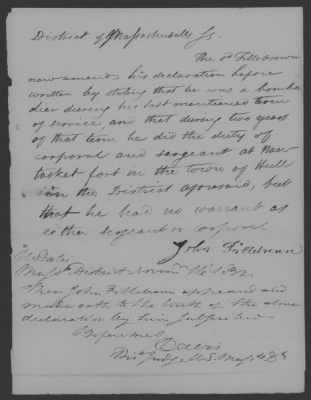 District of Massachusetts Ss.
The sd Fillebrown
now amends his declaration before
written by stating that he was a bomba
dier during his last mentioned term
of service, and that during two years
of that term he did the duty of
corporal and sergeant at Nan
tasket fort in the town of Hull
in the District aforesaid, but
that he had no warrant as
either sergeant or corporal
John Fillebrown
U States
Massts District 1832.
Then John Fillebrown appeared and
made oath to the truth of the above
declaration by him subscribed
Before me J Davis
Dis. Judge U S. Mass. Ds